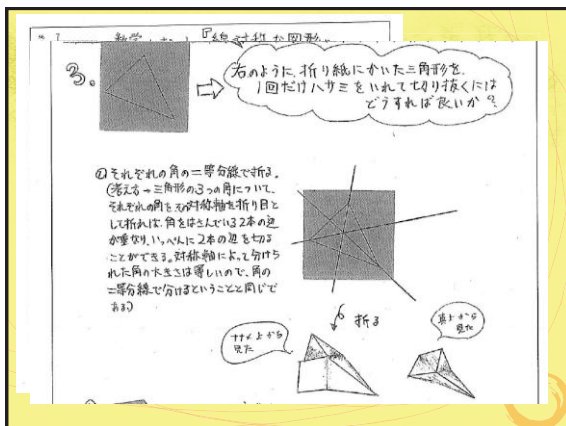 数学 『線対称な図形』
3.
右のように、折り紙にかいた三角形を、
1回だけハサミをいれて切り抜くには
どうすれば良いか?
② それぞれの角の二等分線で折る。
(考え方→三角形の3つの角について、
それぞれの角を対称軸を折り目と
して折れば、角をはさんでいる2本の辺
が重なり、いっぺんに2本の辺を切る
ことができる。対称軸によって分けら
れた角の大きさは等しいので、角の
二等分線で分けるということと同じで
ある)
折る
ナナメ上から
見た
真上から
見た